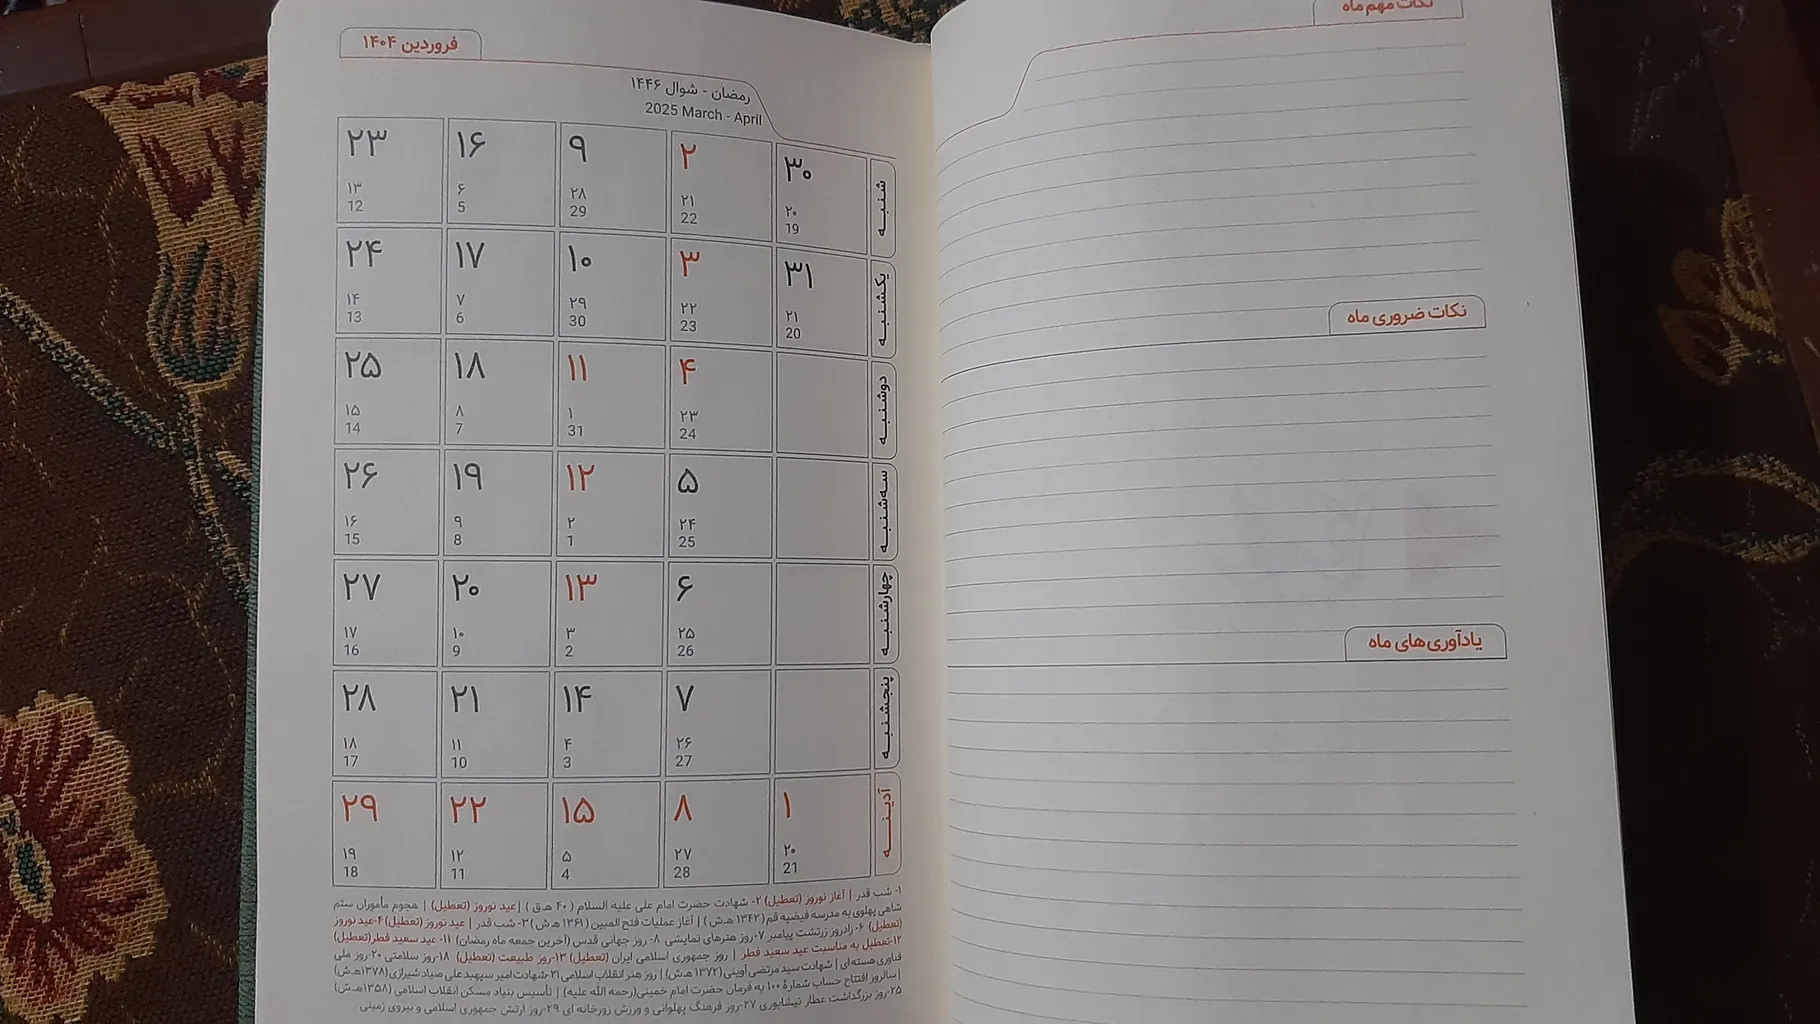 فروردین ۱۴۰۴
رمضان - شوال ۱۴۴۶
2025 March - April
شنبه
۳۰ ۲ ۹ ۱۶ ۲۳
۲۰ ۲۱ ۲۸ ۶ ۱۳
19 22 29 5 12
یکشنبه
۳۱ ۳ ۱۰ ۱۷ ۲۴
۲۱ ۲۲ ۲۹ ۷ ۱۴
20 23 30 6 13
دوشنبه
۴ ۱۱ ۱۸ ۲۵
۲۳ ۱ ۸ ۱۵
24 31 7 14
سه‌شنبه
۵ ۱۲ ۱۹ ۲۶
۲۴ ۲ ۹ ۱۶
25 1 8 15
چهارشنبه
۶ ۱۳ ۲۰ ۲۷
۲۵ ۳ ۱۰ ۱۷
26 2 9 16
پنجشنبه
۷ ۱۴ ۲۱ ۲۸
۲۶ ۴ ۱۱ ۱۸
27 3 10 17
آدینه
۱ ۸ ۱۵ ۲۲ ۲۹
۲۰ ۲۷ ۵ ۱۲ ۱۹
21 28 4 11 18
۱- شب قدر | آغاز نوروز (تعطیل) ۲- شهادت حضرت امام علی علیه السلام (۴۰ ه.ق) | عید نوروز (تعطیل) | هجوم مأموران ستم
شاهی پهلوی به مدرسه فیضیه قم (۱۳۴۲ ه.ش) | آغاز عملیات فتح المبین (۱۳۶۱ ه.ش) ۳- شب قدر | عید نوروز (تعطیل) ۴-عید نوروز
(تعطیل) ۶- زادروز زرتشت پیامبر ۷-روز هنرهای نمایشی ۸- روز جهانی قدس (آخرین جمعه ماه رمضان) ۱۱- عید سعید فطر(تعطیل)
۱۲-تعطیل به مناسبت عید سعید فطر | روز جمهوری اسلامی ایران (تعطیل) ۱۳-روز طبیعت (تعطیل) ۱۸-روز سلامتی ۲۰-روز ملی
فناوری هسته‌ای | شهادت سید مرتضی آوینی (۱۳۷۲ ه.ش) | روز هنر انقلاب اسلامی ۲۱-شهادت امیر سپهبد علی صیاد شیرازی (۱۳۷۸ه.ش)
| سالروز افتتاح حساب شمارهٔ ۱۰۰ به فرمان حضرت امام خمینی(رحمه الله علیه) | تأسیس بنیاد مسکن انقلاب اسلامی (۱۳۵۸ه.ش)
۲۵-روز بزرگداشت عطار نیشابوری ۲۷-روز فرهنگ پهلوانی و ورزش زورخانه ای ۲۹-روز ارتش جمهوری اسلامی و نیروی زمینی
نکات مهم ماه
نکات ضروری ماه
یادآوری‌های ماه